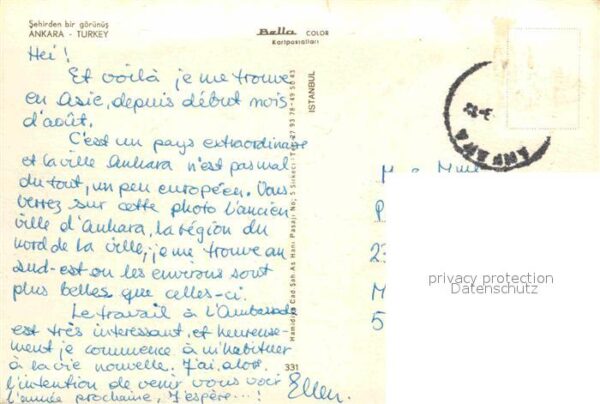 Şehirden bir görünüş
ANKARA - TURKEY
Bella COLOR
Kartpostalları
Hei!
Et voilà je me trouve
en Asie, depuis début mois
d'août.
C'est un pays extraordinaire
et la ville Ankara n'est pas mal
du tout, un peu européen. Vous
verrez sur cette photo l'ancien
ville d'Ankara, la région du
nord de la ville, je me trouve au
sud-est ou les environs sont
plus belles que celles-ci.
Le travail à l'Ambassade
est très intéressant, et heureuse-
ment je commence à m'habituer
à la vie nouvelle. J'ai alors
l'intention de venir vous voir
l'année prochaine, j'espère...!
Ellen.
Hamidiye Cad. Şah As Hanı Pasajı No. 5 Sirkeci - Tel: 27 93 78 - 49 56 45
İSTANBUL
331
ANKARA
P
23
M
5
privacy protection
Datenschutz